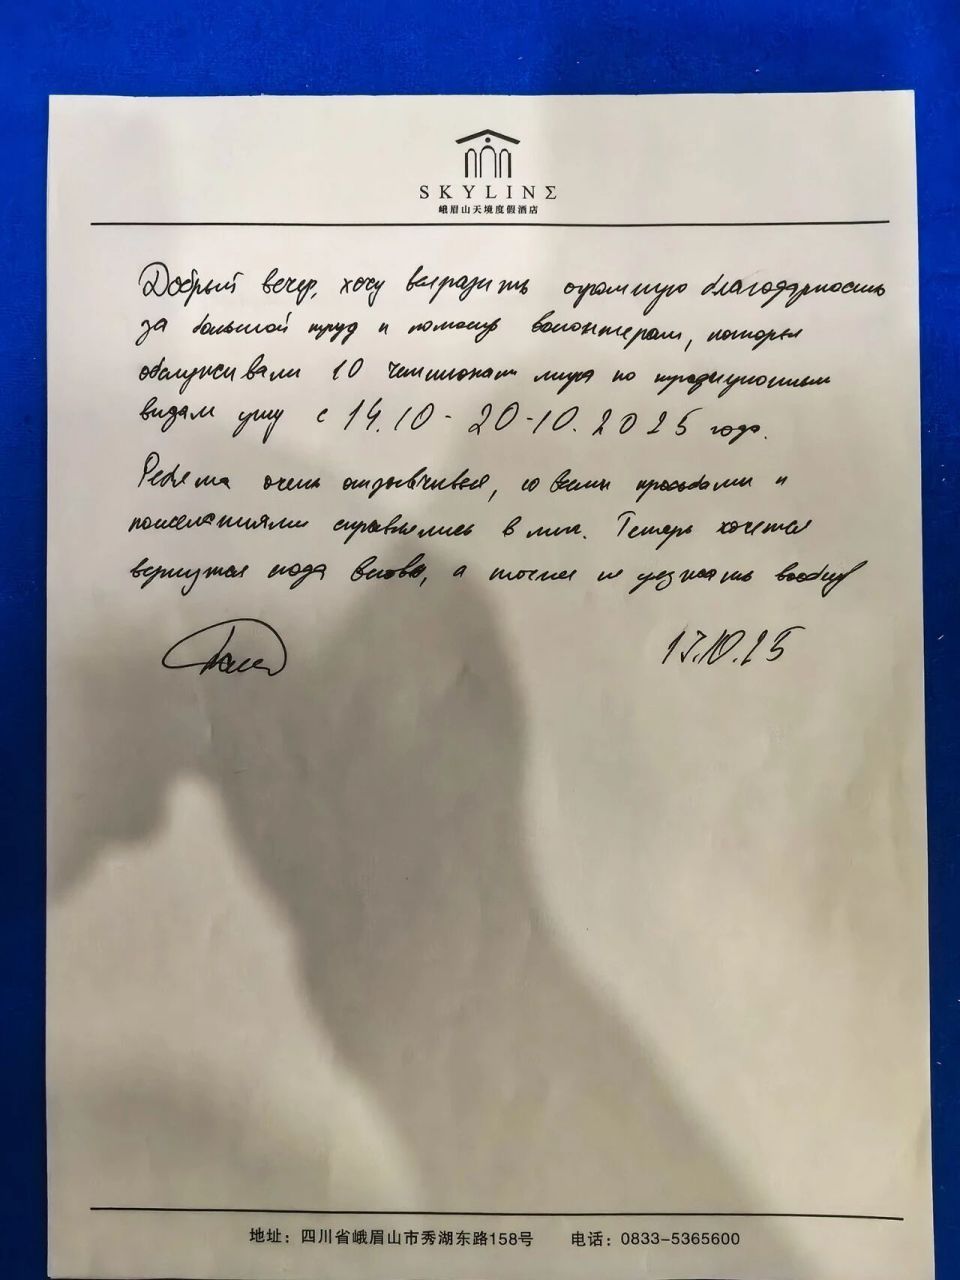 SKYLINΣ
峨眉山天境度假酒店
Добрый вечер, хочу выразить огромную благодарность
за большой труд и помощь волонтерам, которые
обслуживали 10 чемпионат мира по традиционным
видам ушу с 14.10 - 20-10.2025 года.
Ребята очень отзывчивые, со всеми просьбами и
пожеланиями справлялись в миг. Теперь хочется
вернутся сюда вновь, а точнее не уезжать вообще
17.10.25
地址：四川省峨眉山市秀湖东路158号 电话：0833-5365600